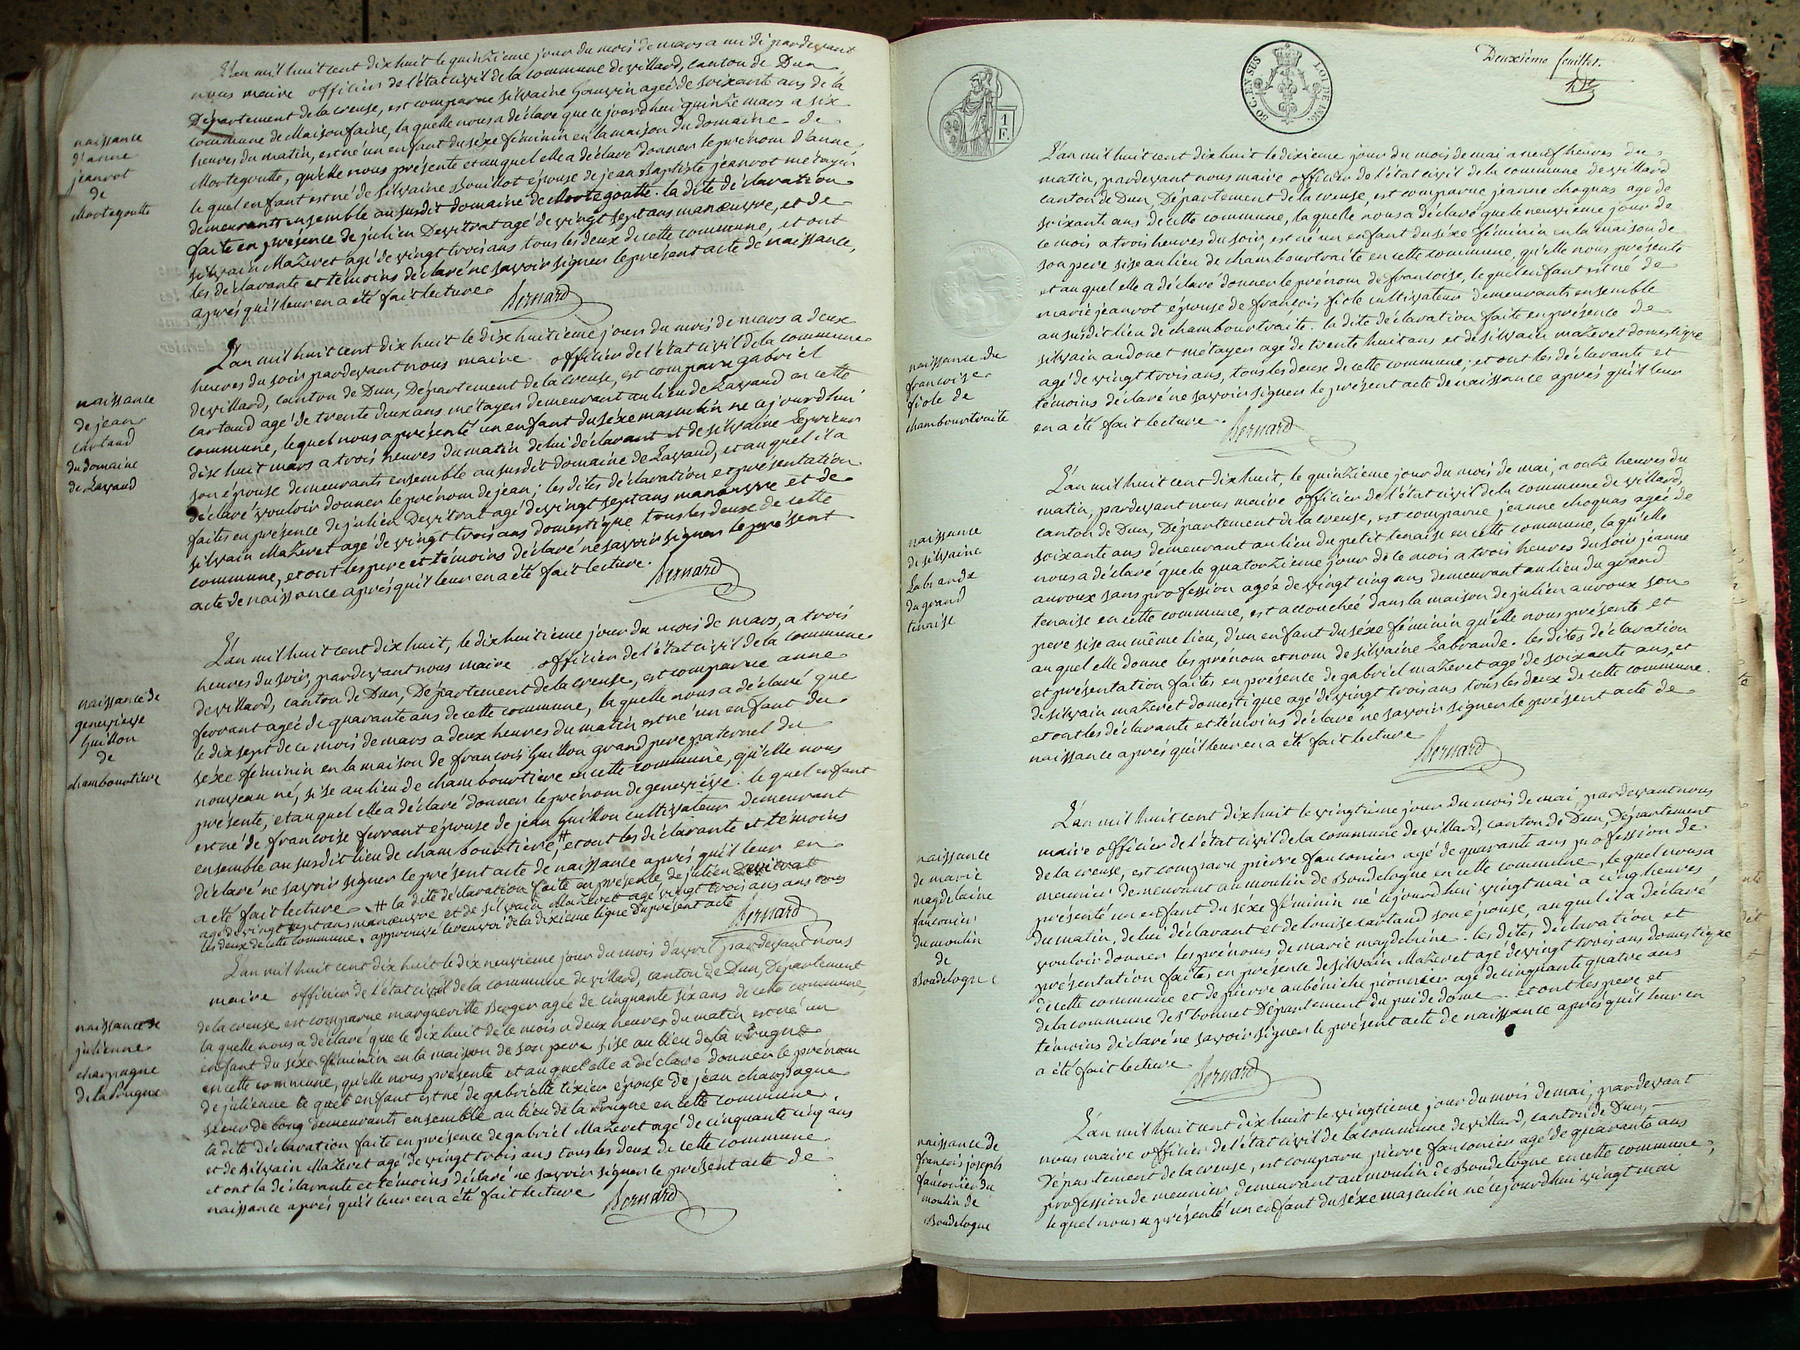 L'an mil huit cent dix huit le quinzieme jour du mois de mars a midi pardevant
nous maire officier de l'état civil de la commune de villard, canton de Dun
Département de la creuse, est comparue silvaine gouvin agée de soixante ans de la
commune de Maisonfaine, la quelle nous a déclaré que ce jourdhui quinze mars a six
heures du matin, est né un enfant du séxe féminin en la maison du domaine de
Mortegoutte, qu'elle nous présente et au quel elle a déclaré donner le prénom d'anne,
le quel enfant est né de silvaine Bouillot épouse de jean Baptiste jeanvot métayer
demeurants ensemble au susdit domaine de Mortegoutte. la dite déclaration
faite en présence de julien Devitrat agé de vingt sept ans manœuvre, et de
silvain Mazeret agé de vingt trois ans tous les deux de cette commune, et ont
les déclarante et témoins déclaré ne savoir signer le présent acte de naissance,
après qu'il leur en a été fait lecture
Bernard
naissance
d'anne
jeanvot
de
Mortegoutte
L'an mil huit cent dix huit le dix huitieme jour du mois de mars a deux
heures du soir pardevant nous maire officier de l'état civil de la commune
de villard, canton de Dun, Département de la creuse, est comparu gabriel
cartaud agé de trente deux ans métayer demeurant au lieu de Lavaud en cette
commune, le quel nous a présenté un enfant du séxe masculin né ce jourd'hui
dix huit mars a trois heures du matin de lui déclarant et de silvaine
son épouse demeurants ensemble au susdit domaine de Lavaud, et au quel il a
déclaré vouloir donner le prénom de jean; les dites déclaration et présentation
faites en présence de julien Devitrat agé de vingt sept ans manœuvre et de
silvain Mazeret agé de vingt trois ans domestique tous les deux de cette
commune, et ont les pere et témoins déclaré ne savoir signer le présent
acte de naissance après qu'il leur en a été fait lecture.
Bernard
naissance
de jean
cartaud
du domaine
de Lavaud
L'an mil huit cent dix huit, le dix huitieme jour du mois de mars, a trois
heures du soir, pardevant nous maire officier de l'état civil de la commune
de villard, canton de Dun, Département de la creuse, est comparue anne
ferrant agée de quarante ans de cette commune, la quelle nous a déclaré que
le dix sept de ce mois de mars a deux heures du matin est né un enfant du
séxe féminin en la maison de francois Guillon grand pere paternel du
nouveau né, sise au lieu de chambourtiere en cette commune, qu'elle nous
présente, et au quel elle a déclaré donner le prénom de genevieve. le quel enfant
est né de francoise ferrant épouse de jean Guillon cultivateur demeurant
ensemble au susdit lieu de chambourtiere, # et ont les déclarante et témoins
déclaré ne savoir signer le présent acte de naissance après qu'il leur en
a été fait lecture. # la dite déclaration faite en présence de julien Devitrat
agé de vingt sept ans manœuvre et de silvain Mazeret agé vingt trois ans ans tous
les deux de cette commune. approuvé le renvoi de la dixieme ligne du présent acte
Bernard
naissance de
genevieve
Guillon
de
chambourtiere
L'an mil huit cent dix huit le dix neuvieme jour du mois d'avril pardevant nous
maire officier de l'état civil de la commune de villard, canton de Dun, Département
de la creuse est comparue margueritte Berger agée de cinquante six ans de cette commune,
la quelle nous a déclaré que le dix huit de ce mois a deux heures du matin est né un
enfant du séxe féminin en la maison de son pere sise au lieu de la Prugne
en cette commune, qu'elle nous présente et au quel elle a déclaré donner le prénom
de julienne le quel enfant est né de gabrielle tixier épouse de jean champagne
sieur de long demeurants ensemble au lieu de la Prugne en cette commune.
la dite déclaration faite en présence de gabriel Mazeret agé de cinquante cinq ans
et de silvain Mazeret agé de vingt trois ans tous les deux de cette commune
et ont la déclarante et témoins déclaré ne savoir signer le présent acte de
naissance après qu'il leur en a été fait lecture
Bernard
naissance de
julienne
champagne
de la Prugne
Deuxième feuillet
1
F
L'an mil huit cent dix huit le dixieme jour du mois de mai a neuf heures du
matin, pardevant nous maire officier de l'état civil de la commune de villard
canton de Dun, Département de la creuse, est comparue jeanne choquas agé de
soixante ans de cette commune, la quelle nous a déclaré que le neuvieme jour de
ce mois a trois heures du soir, est né un enfant du séxe féminin en la maison de
son pere sise au lieu de chambourtraite en cette commune, qu'elle nous présente
et au quel elle a déclaré donner le prénom de francoise, le quel enfant est né de
marie jeanvot épouse de francois fiole cultivateur demeurants ensemble
au susdit lieu de chambourtraite. la dite déclaration faite en présence de
silvain audouet métayer agé de trente huit ans et de silvain mazeret domestique
agé de vingt trois ans, tous les deux de cette commune; et ont les déclarante et
témoins déclaré ne savoir signer le présent acte de naissance après qu'il leur
en a été fait lecture.
Bernard
naissance de
francoise
fiole de
chambourtraite
L'an mil huit cent dix huit, le quinzieme jour du mois de mai, a onze heures du
matin, pardevant nous maire officier de l'état civil de la commune de villard,
canton de Dun, Département de la creuse, est comparue jeanne choquas agée de
soixante ans demeurant au lieu du petit tenaise en cette commune, la quelle
nous a déclaré que le quatorzieme jour de ce mois a trois heures du soir jeanne
auroux sans profession agée de vingt cinq ans demeurant au lieu du grand
tenaise en cette commune, est accouchée dans la maison de julien auroux son
pere sise au même lieu, d'un enfant du séxe féminin qu'elle nous présente et
au quel elle donne les prénom et nom de silvaine Labrande. les dites déclaration
et présentation faites en présence de gabriel mazeret agé de soixante ans, et
de silvain mazeret domestique agé de vingt trois ans tous les deux de cette commune.
et ont les déclarante et témoins déclaré ne savoir signer le présent acte de
naissance après qu'il leur en a été fait lecture
Bernard
naissance
de silvaine
Labrande
du grand
tenaise
L'an mil huit cent dix huit le vingtieme jour du mois de mai, pardevant nous
maire officier de l'état civil de la commune de villard, canton de Dun, Département
de la creuse, est comparu pierre fauconier agé de quarante ans profession de
meunier demeurant au moulin de Boudelogne en cette commune, le quel nous a
présenté un enfant du séxe féminin né ce jourd'hui vingt mai a cinq heures
du matin, de lui déclarant et de louise cartaud son épouse, au quel il a déclaré
vouloir donner les prénoms de marie magdelaine. les dites déclaration et
présentation faites en présence de silvain Mazeret agé de vingt trois ans domestique
de cette commune et de pierre aubéniche pionnier agé de cinquante quatre ans
de la commune de St bonnet Département du pui de dome. et ont les pere et
témoins déclaré ne savoir signer le présent acte de naissance après qu'il leur en
a été fait lecture
Bernard
naissance
de marie
magdelaine
fauconier
du moulin
de
Boudelogne
L'an mil huit cent dix huit le vingtieme jour du mois de mai, pardevant
nous maire officier de l'état civil de la commune de villard, canton de Dun,
Département de la creuse, est comparu pierre fauconier agé de quarante ans
profession de meunier demeurant au moulin de Boudelogne en cette commune,
le quel nous a présenté un enfant du séxe masculin né ce jourdhui vingt mai
naissance de
francois joseph
fauconier du
moulin de
Boudelogne